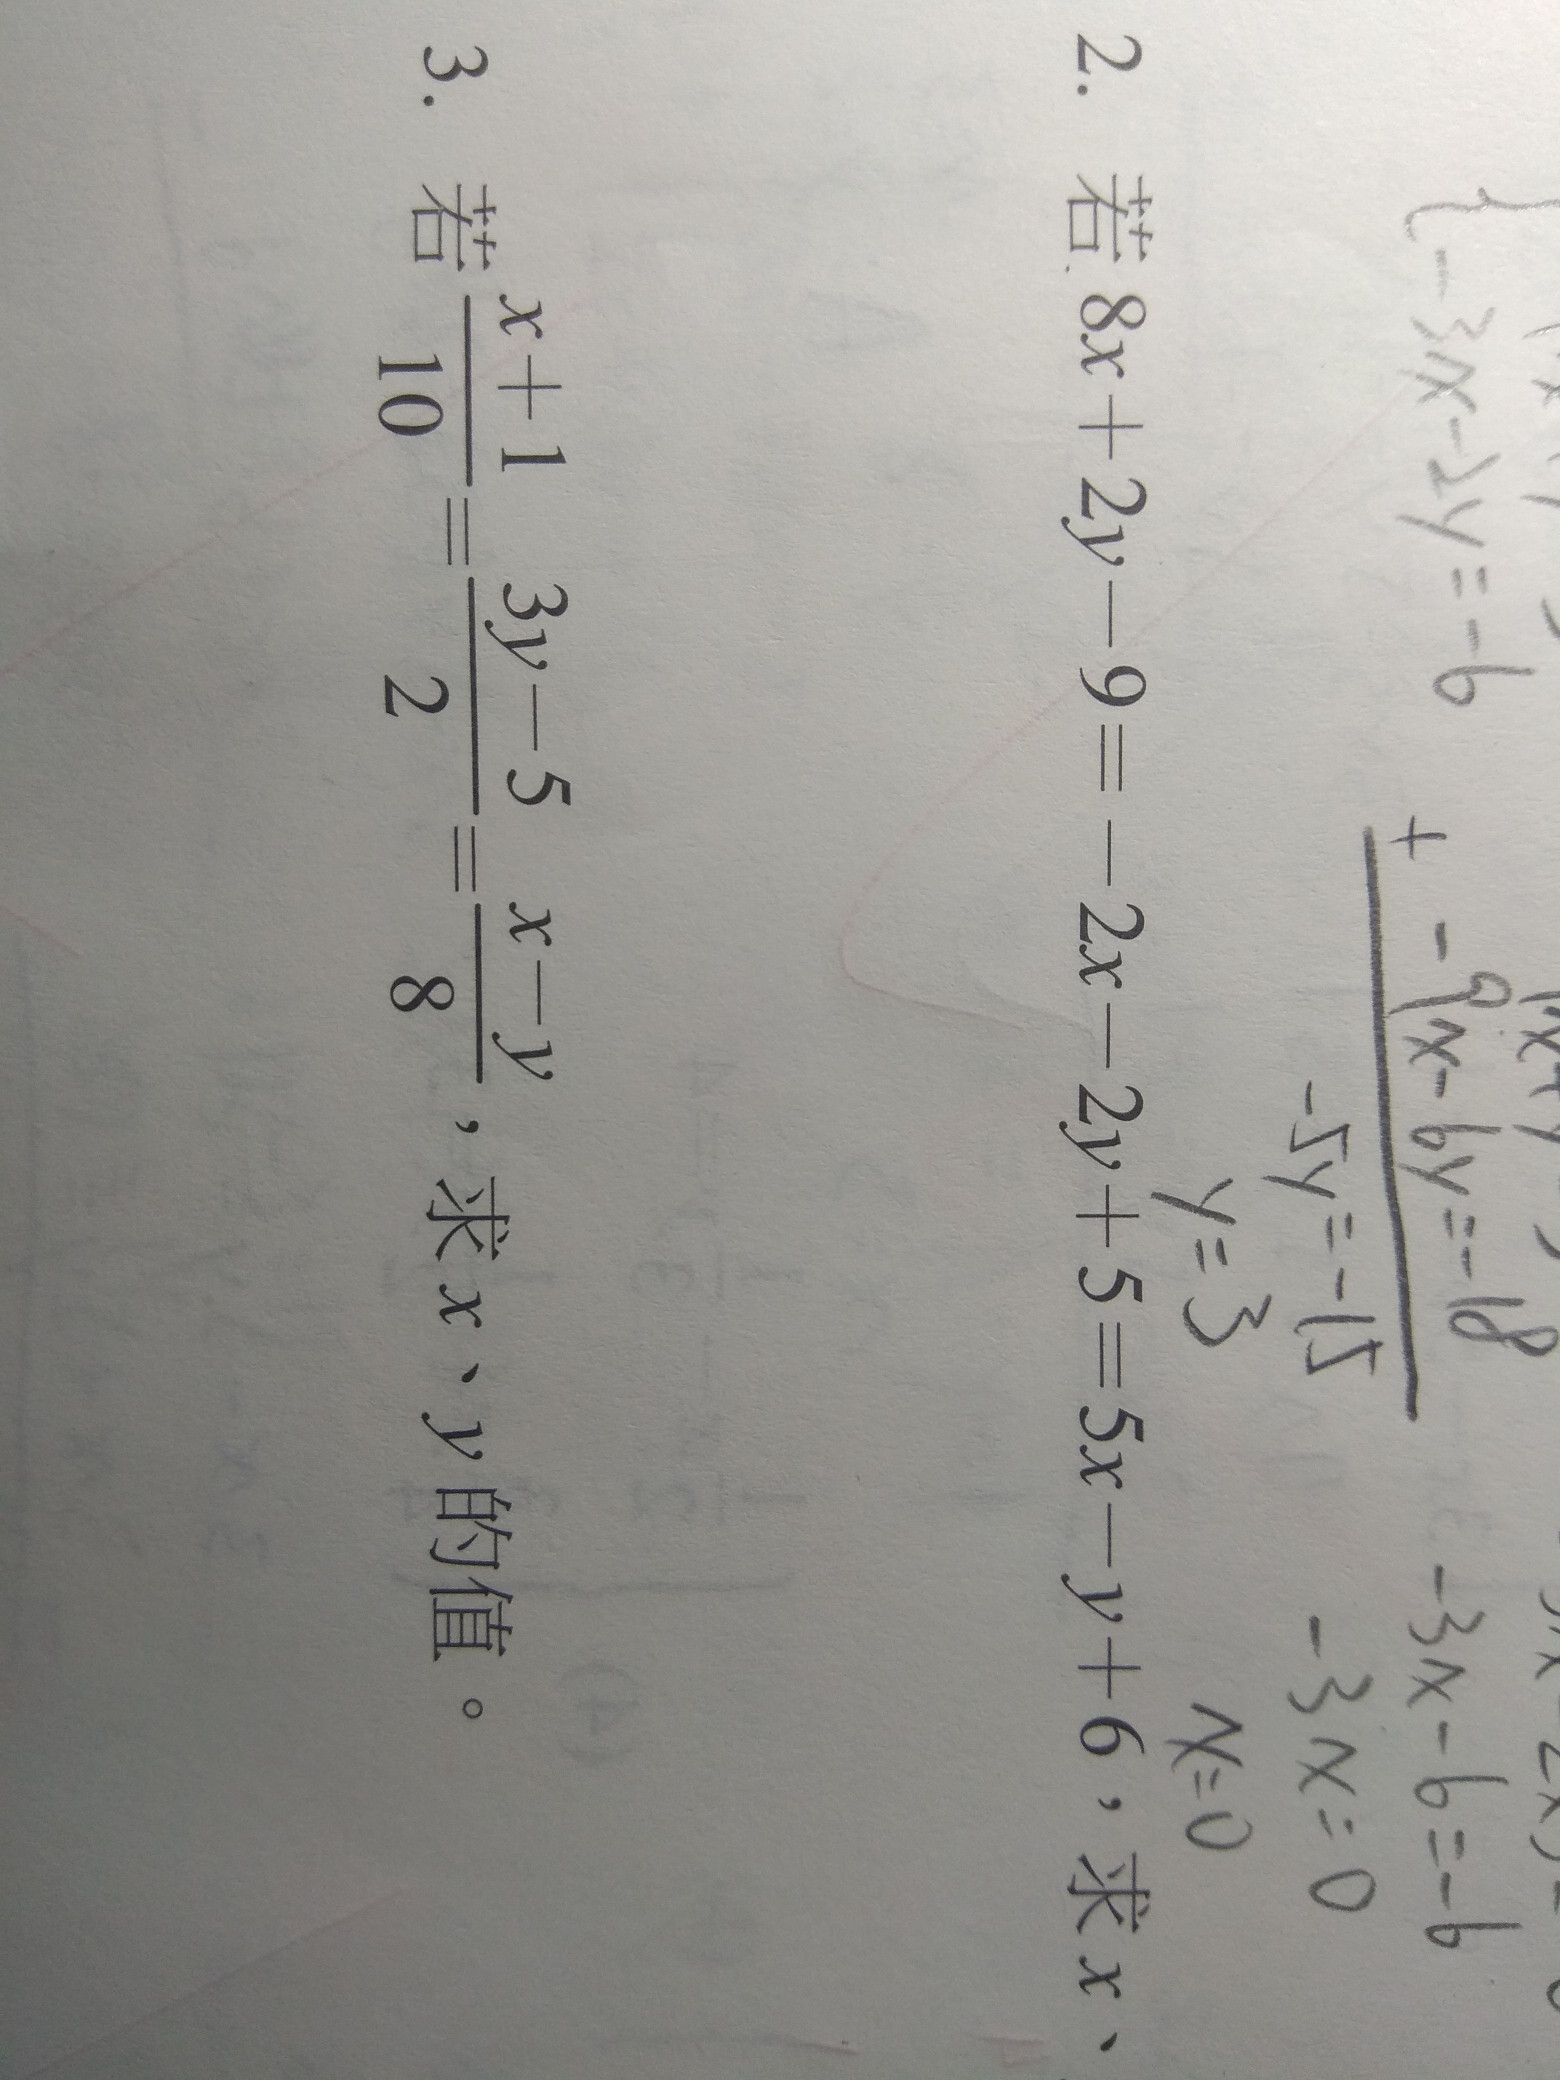 { -3x-2y=-6
+ -9x-6y=-18
-5y=-15
y=3
-3x-6=-6
-3x=0
x=0
2. 若8x+2y-9=-2x-2y+5=5x-y+6,求x、
3. 若 \frac{x+1}{10}=\frac{3y-5}{2}=\frac{x-y}{8},求x、y的值。